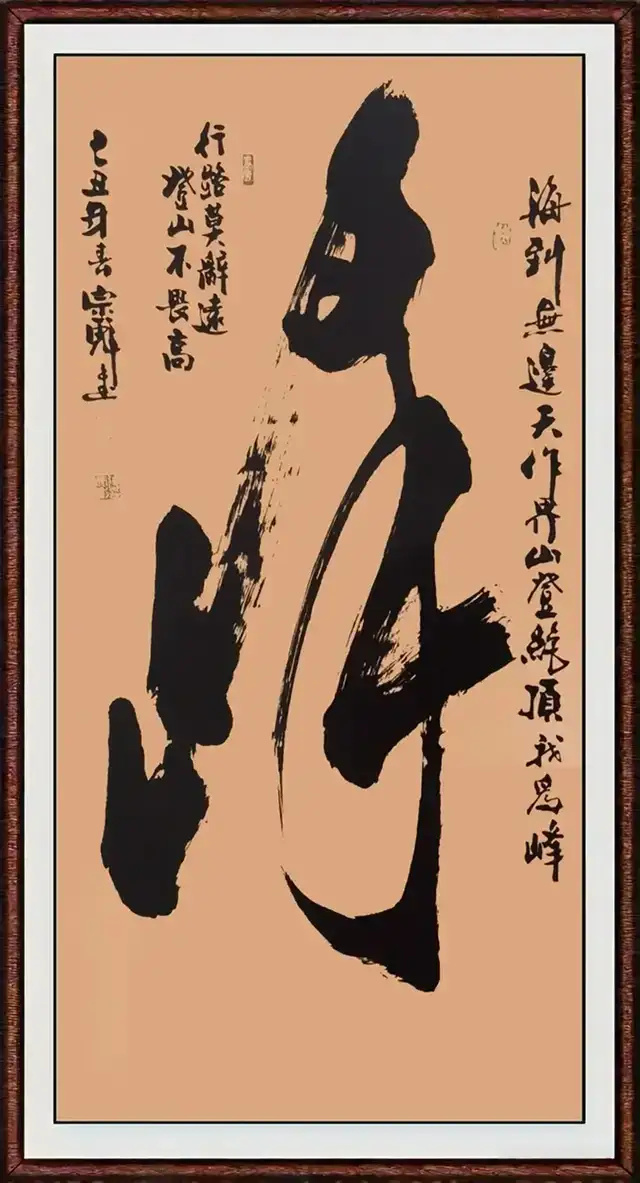 海到無邊天作界山登絶頂我為峰
行路莫辭遠
登山不畏高
己丑年春宗書